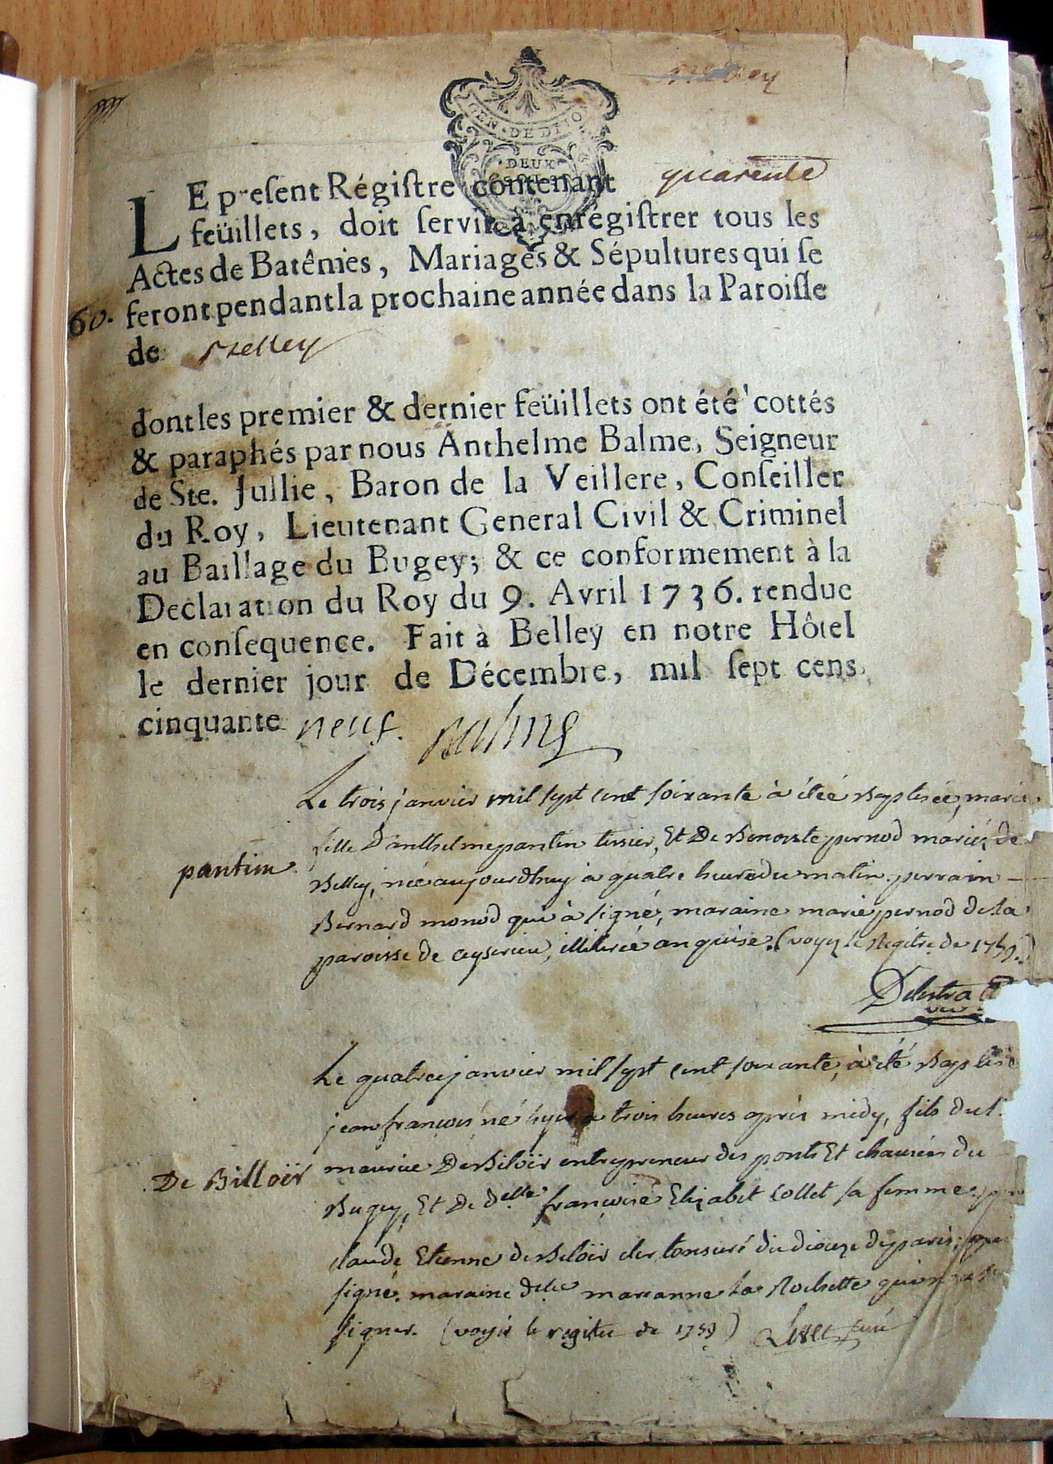 GEN · DE DIJON
· DEUX ·
LE present Régistre contenant quarente
feüillets, doit servir à enrégistrer tous les
Actes de Batêmes, Mariages & Sépultures qui se
feront pendant la prochaine année dans la Paroisse
60.
de Belley
dont les premier & dernier feüillets ont été cottés
& paraphés par nous Anthelme Balme, Seigneur
de Ste. Jullie, Baron de la Veillere, Conseiller
du Roy, Lieutenant General Civil & Criminel
au Baillage du Bugey; & ce conformement à la
Declaration du Roy du 9. Avril 1736. rendue
en consequence. Fait à Belley en notre Hôtel
le dernier jour de Décembre, mil sept cens
cinquante neuf. Balme
Le trois janvier mil sept cent soixante à étéé Baptisée, marie
fille D'anthelme pantin tissier, Et De Benoiste pernod mariés de
pantin
Belley, née aujourdhuy a quatre heures du matin. parrain
Bernard monod qui à signé, maraine marie pernod de la
paroisse de ceyserieu, illiterée enquise. (voyez le Regitre de 1759.)
Le quatre janvier mil sept cent soixante, à été Baptisé
jean françois né hyer a trois heures après midy, fils du s.
De Billoïr
maurice De Biloïr entrepreneur des ponts Et chaussées du
Bugey, Et De Delle françoise Elizabet Collet sa femme,
claude Etienne de Biloïr cler tonsuré du dioceze de paris,
signé. maraine delle marianne la Rochette qui
signer. (voyés le regitre de 1759)